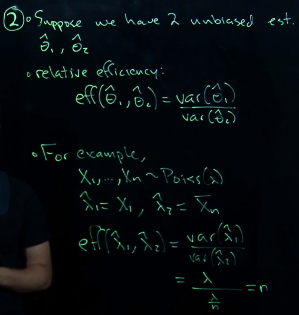 ② • Suppose we have 2 unbiased est.
θ̂₁, θ̂₂
• relative efficiency:
eff(θ̂₁, θ̂₂) = var(θ̂₁)
var(θ̂₂)
• For example,
X₁, ..., Xₙ ~ Poiss(λ)
λ̂₁ = X₁, λ̂₂ = X̄ₙ
eff(λ̂₁, λ̂₂) = var(λ̂₁)
var(λ̂₂)
= λ
λ/n = n